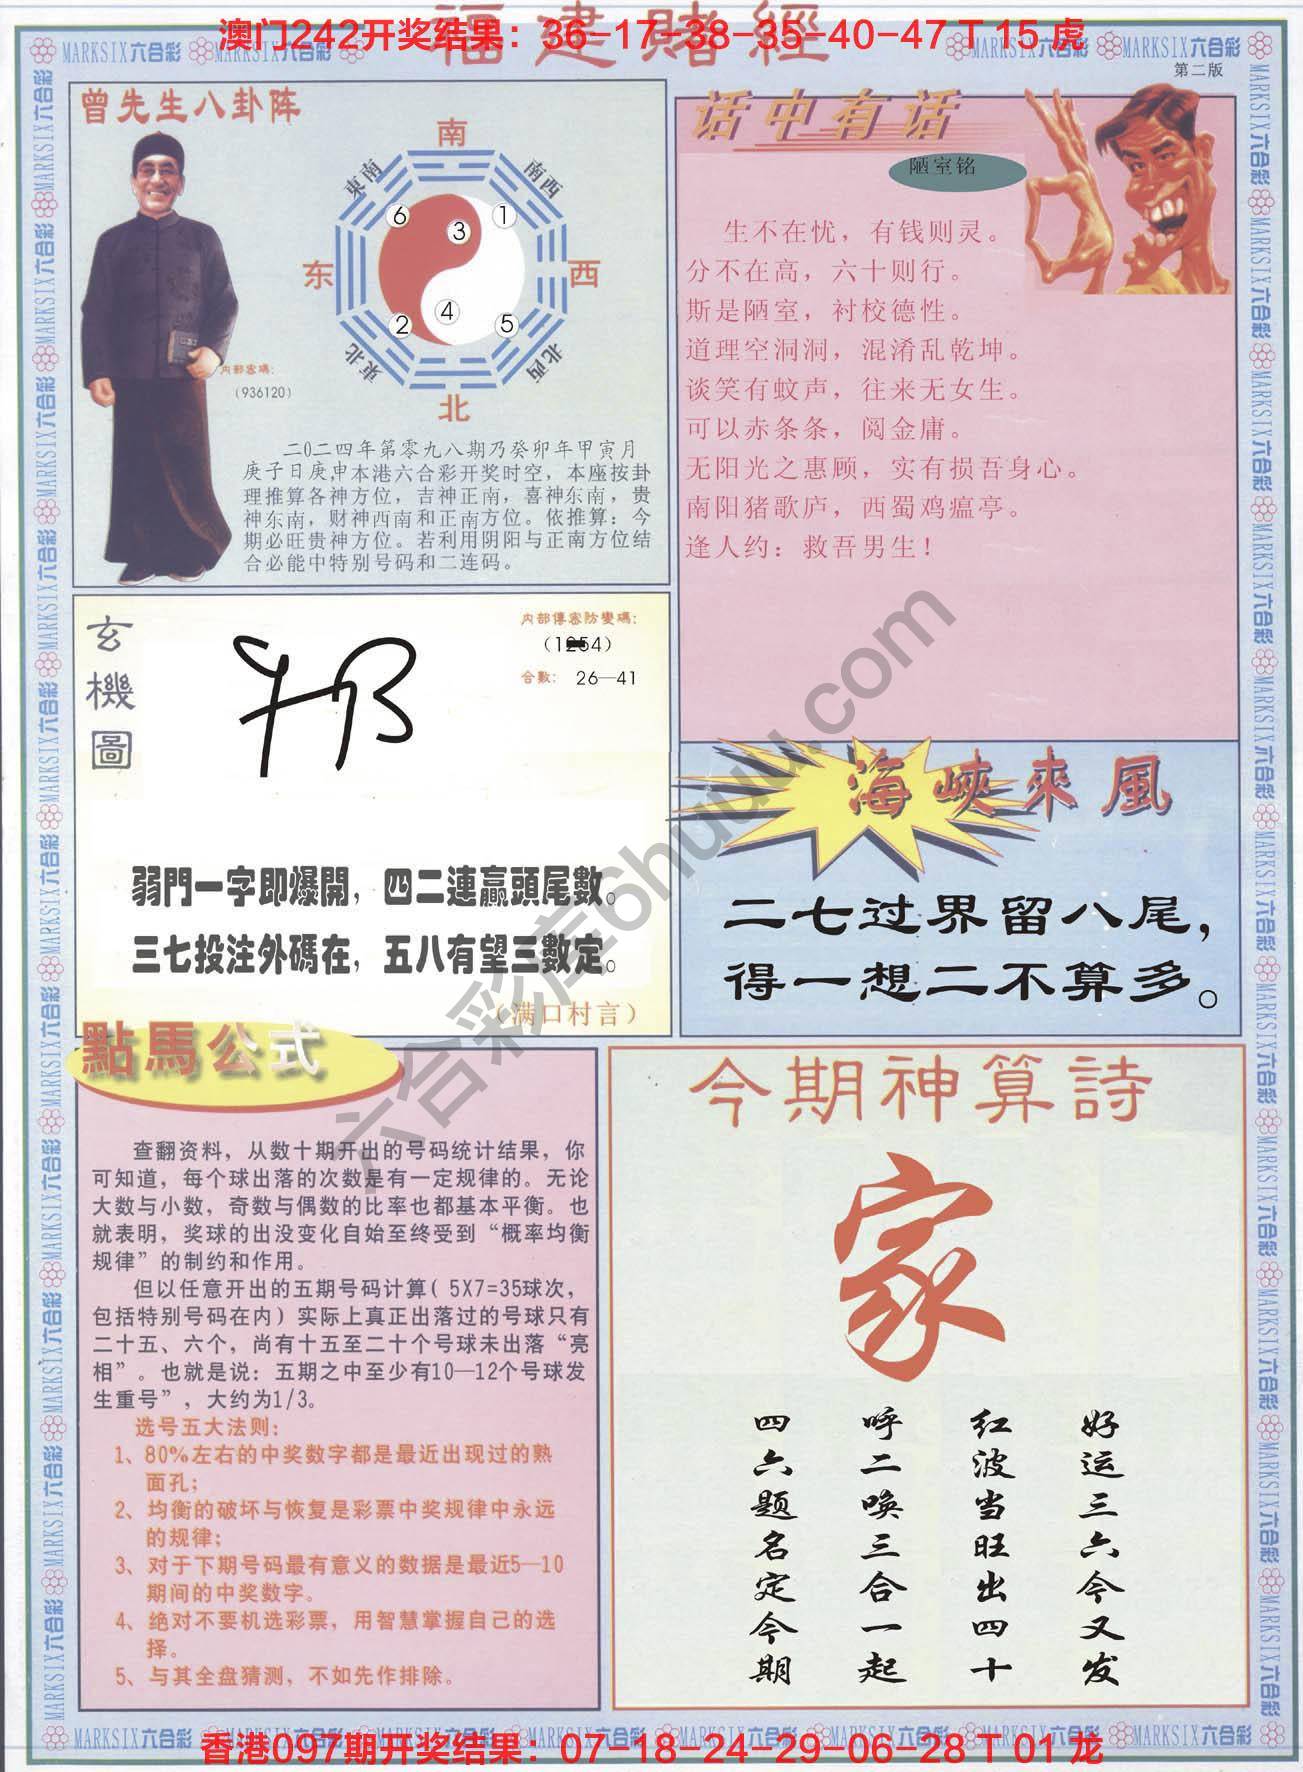 福建賭經
澳门242开奖结果：36-17-38-35-40-47 T 15 虎
MARKSIX六合彩 MARKSIX六合彩 MARKSIX六合彩 MARKSIX六合彩
第二版
曾先生八卦阵
南
東南
南西
6
1
3
东
西
4
2
5
東北
北西
北
内部密碼：
（936120）
二0二四年第零九八期乃癸卯年甲寅月
庚子日庚申本港六合彩开奖时空，本座按卦
理推算各神方位，吉神正南，喜神东南，贵
神东南，财神西南和正南方位。依推算：今
期必旺贵神方位。若利用阴阳与正南方位结
合必能中特别号码和二连码。
话中有话
陋室铭
生不在忧，有钱则灵。
分不在高，六十则行。
斯是陋室，衬校德性。
道理空洞洞，混淆乱乾坤。
谈笑有蚊声，往来无女生。
可以赤条条，阅金庸。
无阳光之惠顾，实有损吾身心。
南阳猪歌庐，西蜀鸡瘟亭。
逢人约：救吾男生！
玄機圖
内部傳密防變碼：
（1254）
合數： 26—41
弱門一字即爆開，四二連贏頭尾數。
三七投注外碼在，五八有望三數定。
（满口村言）
海峽來風
二七过界留八尾，
得一想二不算多。
六合彩库6huuu.com
點馬公式
查翻资料，从数十期开出的号码统计结果，你
可知道，每个球出落的次数是有一定规律的。无论
大数与小数，奇数与偶数的比率也都基本平衡。也
就表明，奖球的出没变化自始至终受到“概率均衡
规律”的制约和作用。
但以任意开出的五期号码计算（5X7=35球次，
包括特别号码在内）实际上真正出落过的号球只有
二十五、六个，尚有十五至二十个号球未出落“亮
相”。也就是说：五期之中至少有10—12个号球发
生重号”，大约为1/3。
选号五大法则：
1、80%左右的中奖数字都是最近出现过的熟
面孔；
2、均衡的破坏与恢复是彩票中奖规律中永远
的规律；
3、对于下期号码最有意义的数据是最近5—10
期间的中奖数字。
4、绝对不要机选彩票，用智慧掌握自己的选
择。
5、与其全盘猜测，不如先作排除。
今期神算詩
家
好运三六今又发
红波当旺出四十
呼二唤三合一起
四六题名定今期
MARKSIX六合彩 MARKSIX六合彩 MARKSIX六合彩 MARKSIX六合彩 MARKSIX六合彩 MARKSIX六合彩 MARKSIX六合彩 MARKSIX六合彩
香港097期开奖结果：07-18-24-29-06-28 T 01 龙